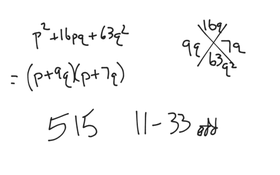 p²+16pq+63q²
= (p+9q)(p+7q)
16q
9q 7q
63q²
515 11-33 odd